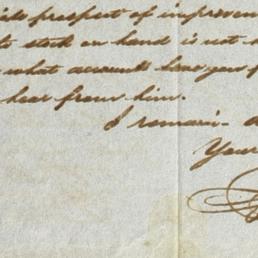 prospect of improvem
stock on hand is not
what accounts have you f
hear from him.
I remain
Your